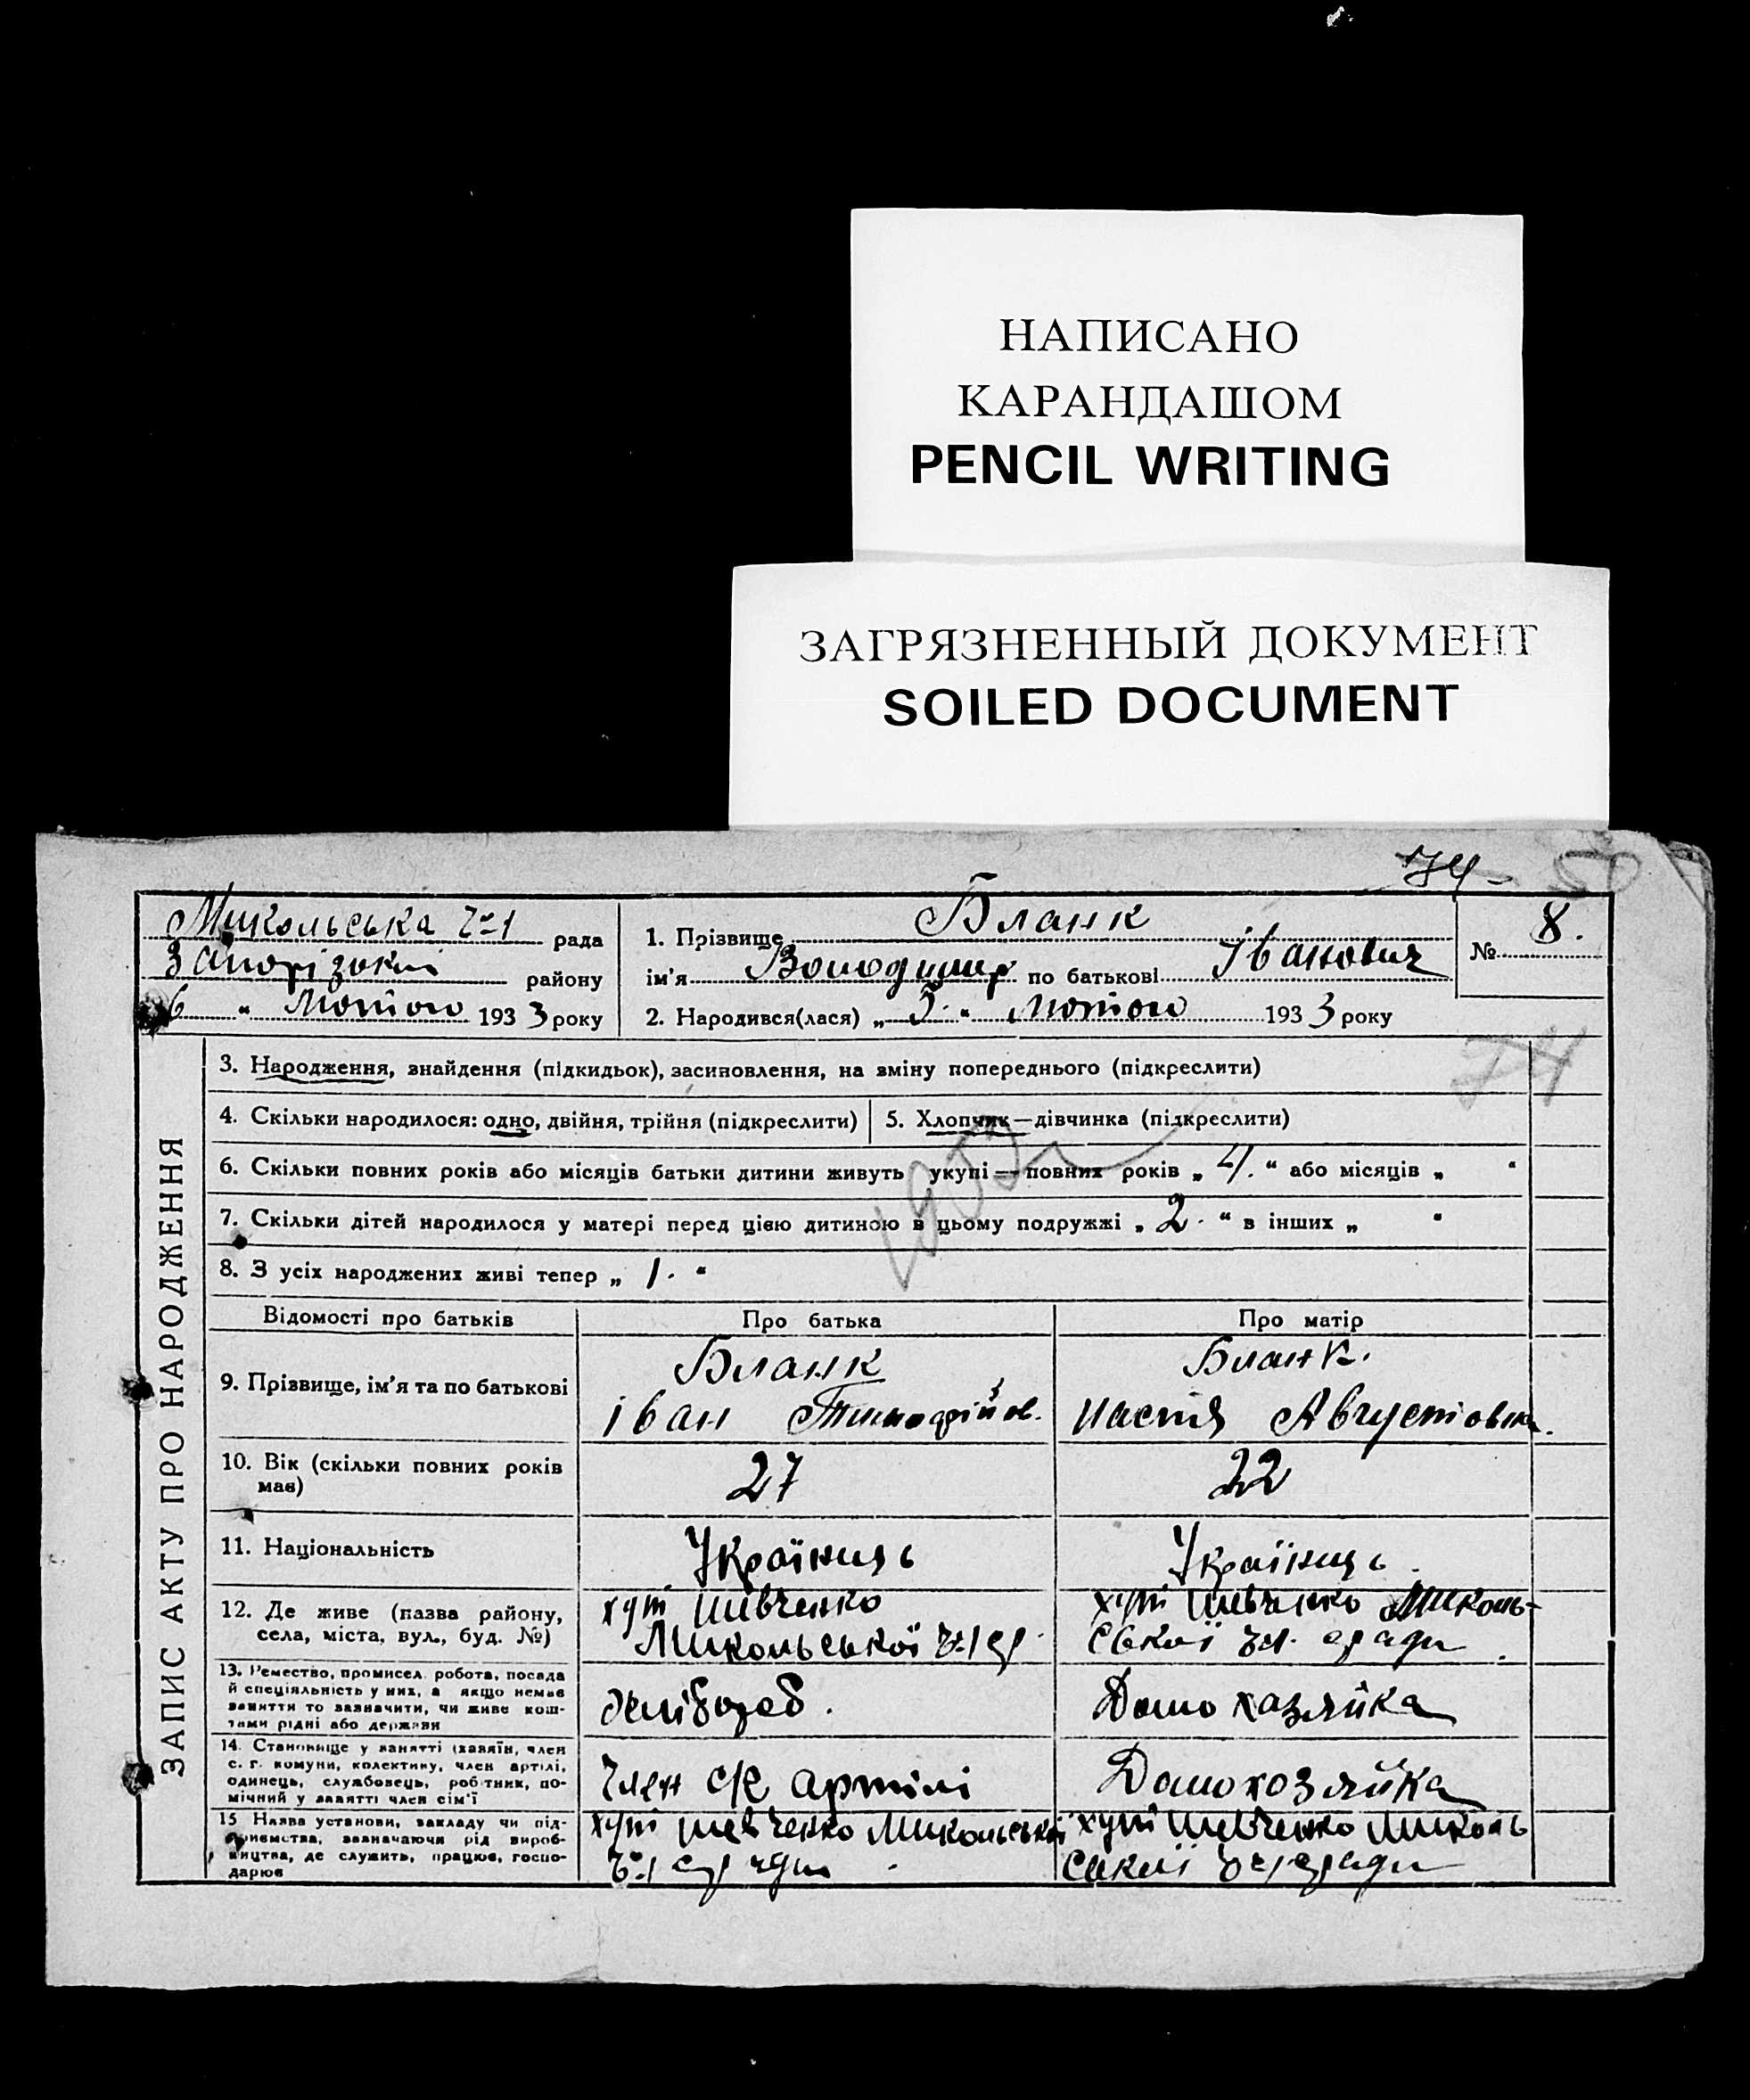 НАПИСАНО
КАРАНДАШОМ
PENCIL WRITING
ЗАГРЯЗНЕННЫЙ ДОКУМЕНТ
SOILED DOCUMENT
74
50
Микольська №1 рада
Запорізький району
6 " Лютого 1933 року
1. Прізвище Бланк
ім'я Володимир по батькові Іванович
2. Народився(лася) „ 5. " Лютого 1933 року
№ 8.
74
ЗАПИС АКТУ ПРО НАРОДЖЕННЯ
3. Народження, знайдення (підкидьок), засиновлення, на зміну попереднього (підкреслити)
4. Скільки народилося: одно, двійня, трійня (підкреслити)
5. Хлопчик—дівчинка (підкреслити)
6. Скільки повних років або місяців батьки дитини живуть укупі — повних років „ 4. " або місяців „ "
7. Скільки дітей народилося у матері перед цією дитиною в цьому подружжі „ 2. " в інших „ "
8. З усіх народжених живі тепер „ 1. "
Відомості про батьків
Про батька
Про матір
9. Прізвище, ім'я та по батькові
Бланк
Іван Тимофійов.
Бланк.
Настя Августовна.
10. Вік (скільки повних років
має)
27
22
11. Національність
Українць
Українць
12. Де живе (назва району,
села, міста, вул., буд. №)
хут Шевченко
Микольської
хут Шевченко Миколь-
ської ради
13. Ремество, промисел, робота, посада
й спеціяльність у них, а якщо немає
заняття то зазначити, чи живе кош-
тами рідні або держави
хлібороб.
Домохазяйка
14. Становище у занятті (хазяїн, член
с. г. комуни, колективу, член артілі,
одинець, службовець, робітник, по-
мічний у занятті член сім'ї
Член с/г артілі
Домохозяйка
15 Назва установи, закладу чи під-
приємства, зазначаючи рід вироб-
ництва, де служить, працює, госпо-
дарює
хут Шевченко Микольської
хут Шевченко Миколь
ської